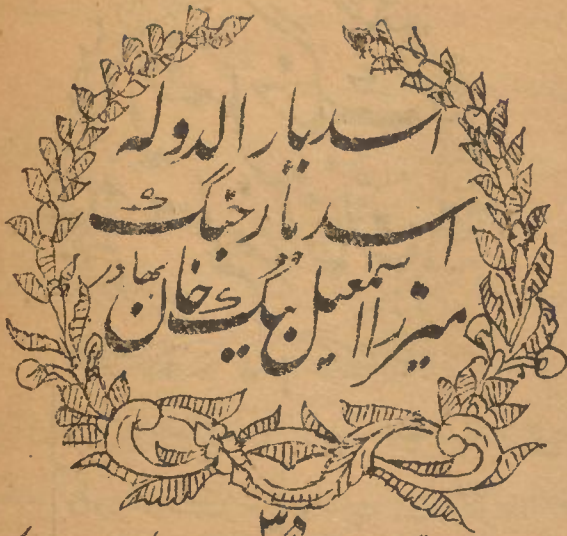 اسد یار الدولہ
اسد یار جنگ
میرزا اسمعیل بیگ خان بہادر
۳۵